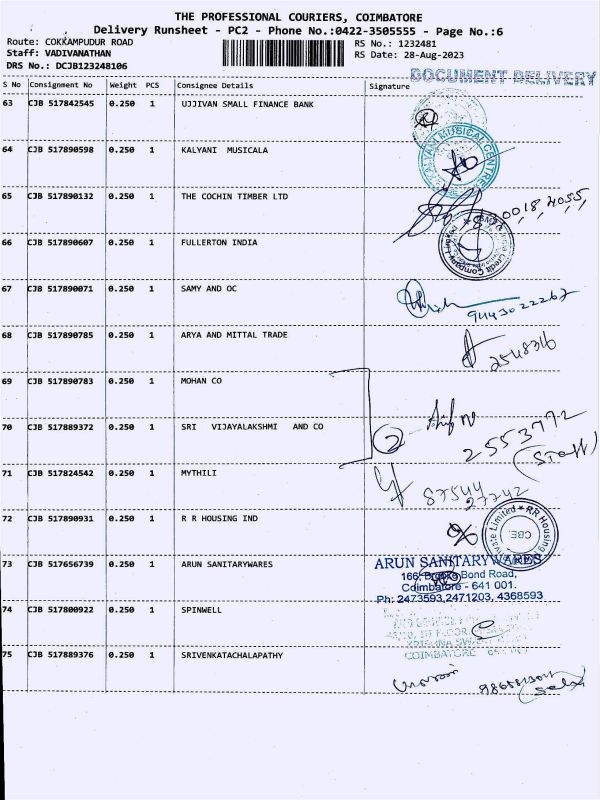 THE PROFESSIONAL COURIERS, COIMBATORE
Delivery Runsheet - PC2 - Phone No.:0422-3505555 - Page No.:6
Route: COKKAMPUDUR ROAD
RS No.: 1232481
Staff: VADIVANATHAN
RS Date: 28-Aug-2023
DRS No.: DCJB123248106
DOCUMENT DELIVERY
S No Consignment No Weight PCS Consignee Details Signature
63 CJB 517842545 0.250 1 UJJIVAN SMALL FINANCE BANK
64 CJB 517890598 0.250 1 KALYANI MUSICALA
KALYANI MUSICAL CENTRE
65 CJB 517890132 0.250 1 THE COCHIN TIMBER LTD
66 CJB 517890607 0.250 1 FULLERTON INDIA
Credit Company Limited
67 CJB 517890071 0.250 1 SAMY AND OC
9443022267
68 CJB 517890785 0.250 1 ARYA AND MITTAL TRADE
2548316
69 CJB 517890783 0.250 1 MOHAN CO
70 CJB 517889372 0.250 1 SRI VIJAYALAKSHMI AND CO
2
2553772
(Staff)
71 CJB 517824542 0.250 1 MYTHILI
87544
27742
72 CJB 517890931 0.250 1 R R HOUSING IND
RR Housing Private Limited
CBE
73 CJB 517656739 0.250 1 ARUN SANITARYWARES
ARUN SANITARYWARES
166, Brooke Bond Road,
Coimbatore - 641 001.
Ph: 2473593,2471203, 4368593
74 CJB 517800922 0.250 1 SPINWELL
COIMBATORE
75 CJB 517889376 0.250 1 SRIVENKATACHALAPATHY